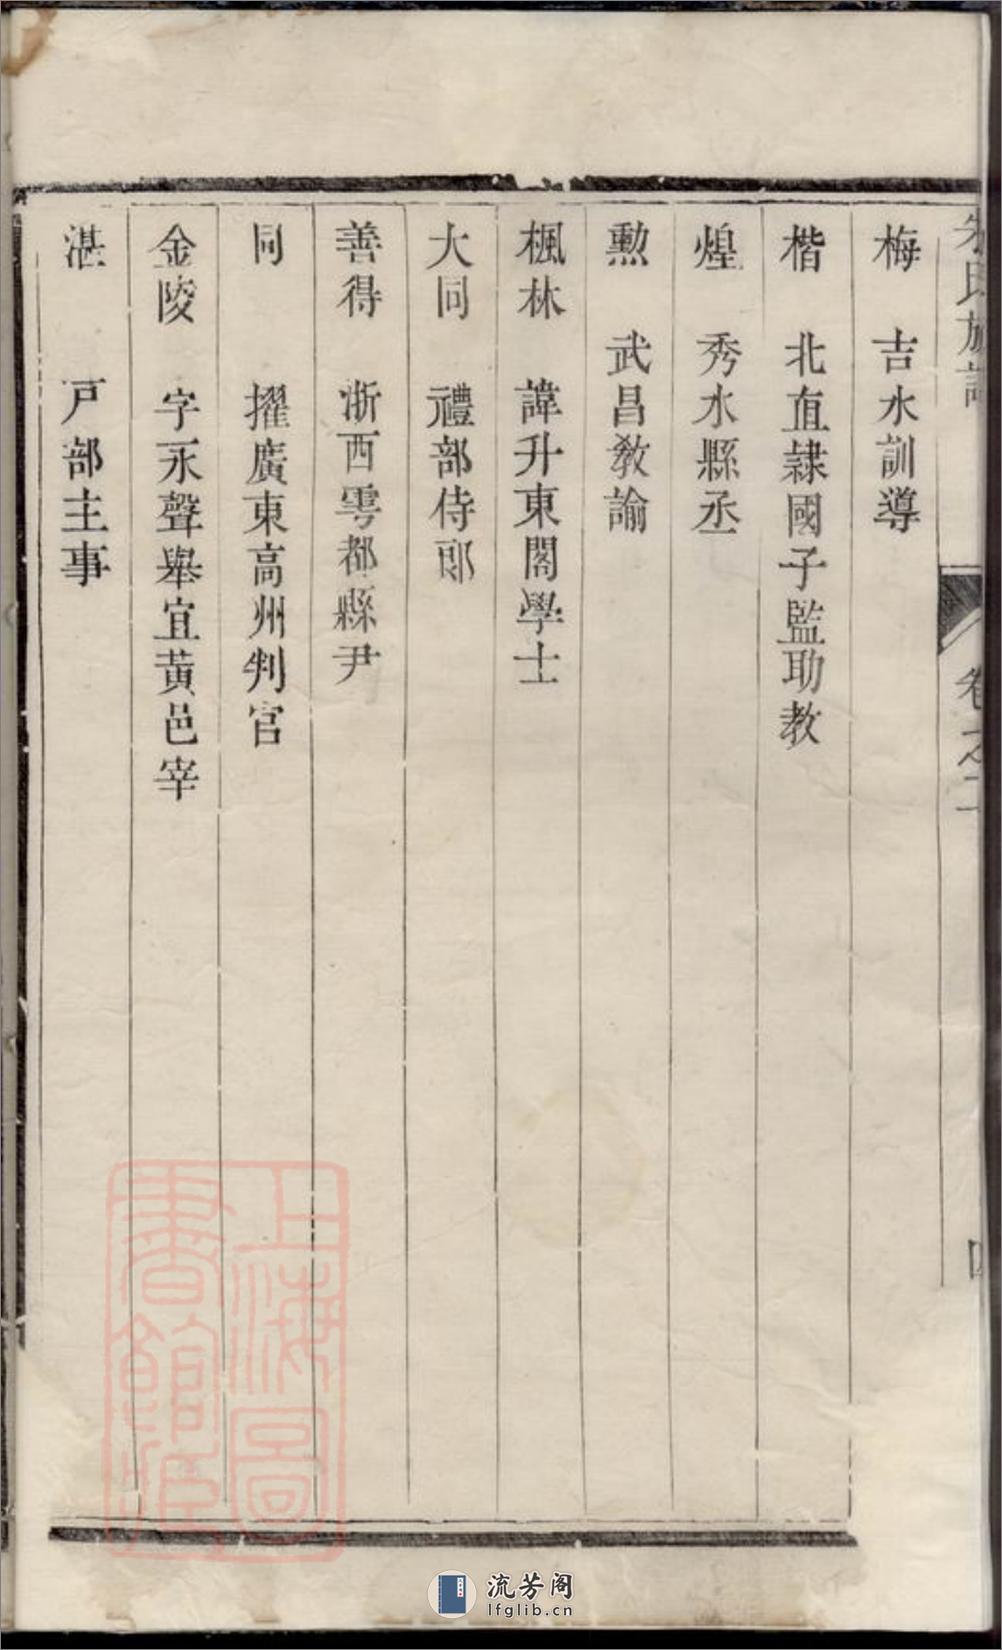 朱氏族譜 卷之二 四
梅 吉水訓導
楷 北直隸國子監助教
煌 秀水縣丞
勲 武昌教諭
楓林 諱升東閣學士
大同 禮部侍郎
善得 浙西雩都縣尹
同 擢廣東高州判官
金陵 字永聲舉宜黄邑宰
湛 戸部主事
上海圖
書館藏
流芳阁
lfglib.cn